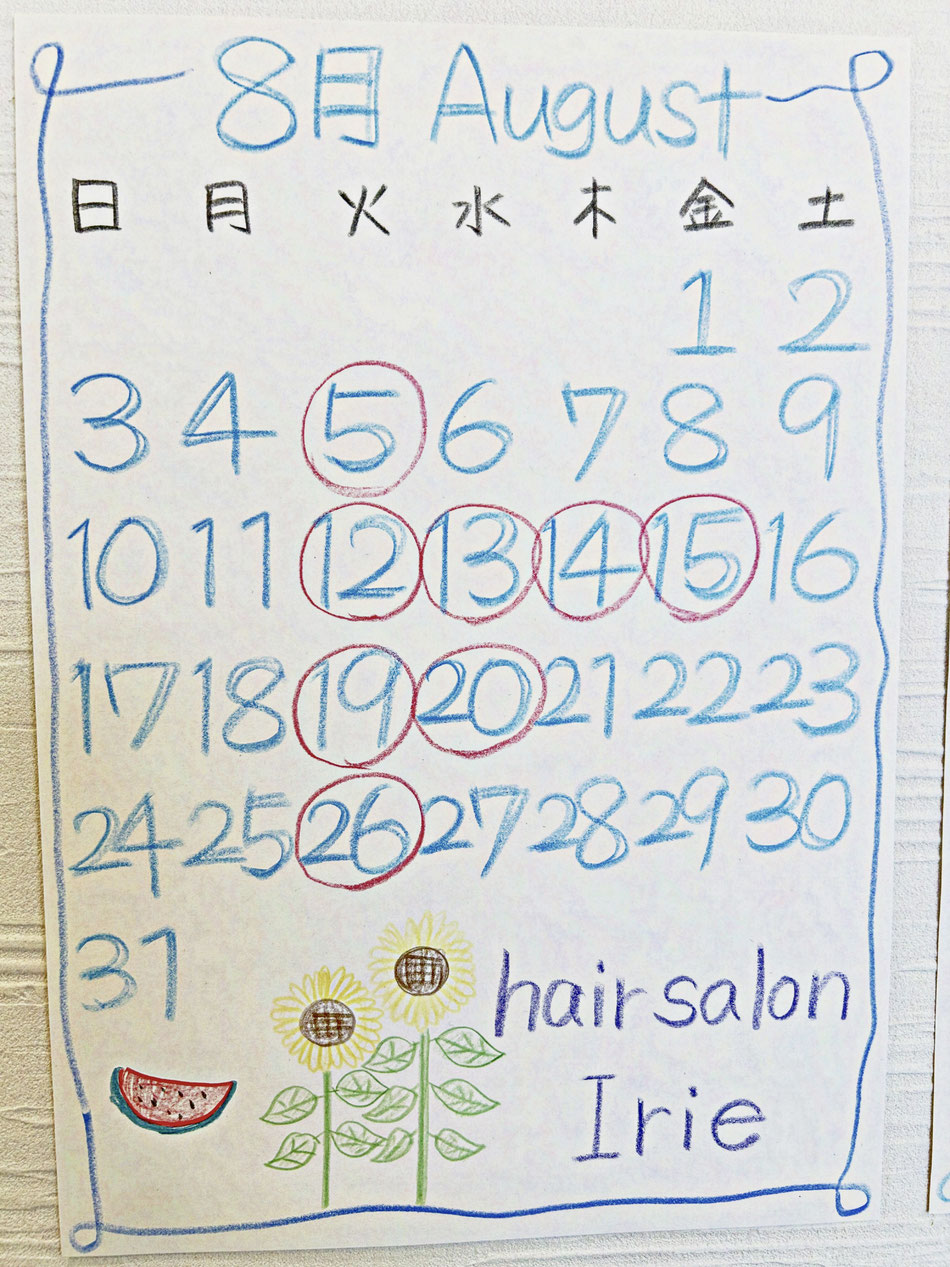 8月 August
日 月 火 水 木 金 土
1 2
3 4 5 6 7 8 9
10 11 12 13 14 15 16
17 18 19 20 21 22 23
24 25 26 27 28 29 30
31
hair salon
Irie